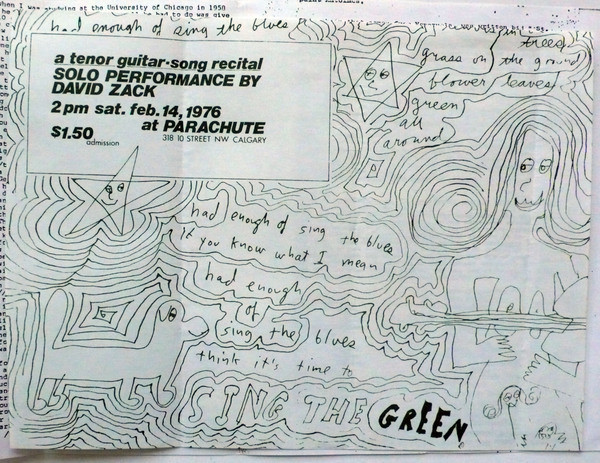 when I was studying at the University of Chicago in 1950
had to do was give
had enough of sing the blues
in trees
grass on the ground
flower leaves
green
all
around
a tenor guitar-song recital
SOLO PERFORMANCE BY
DAVID ZACK
2 pm sat. feb. 14, 1976
at PARACHUTE
$1.50
admission
318 10 STREET NW CALGARY
had enough of sing the blues
If you know what I mean
had enough
(of)
(sing the) blues
think it's time to
SING THE GREEN